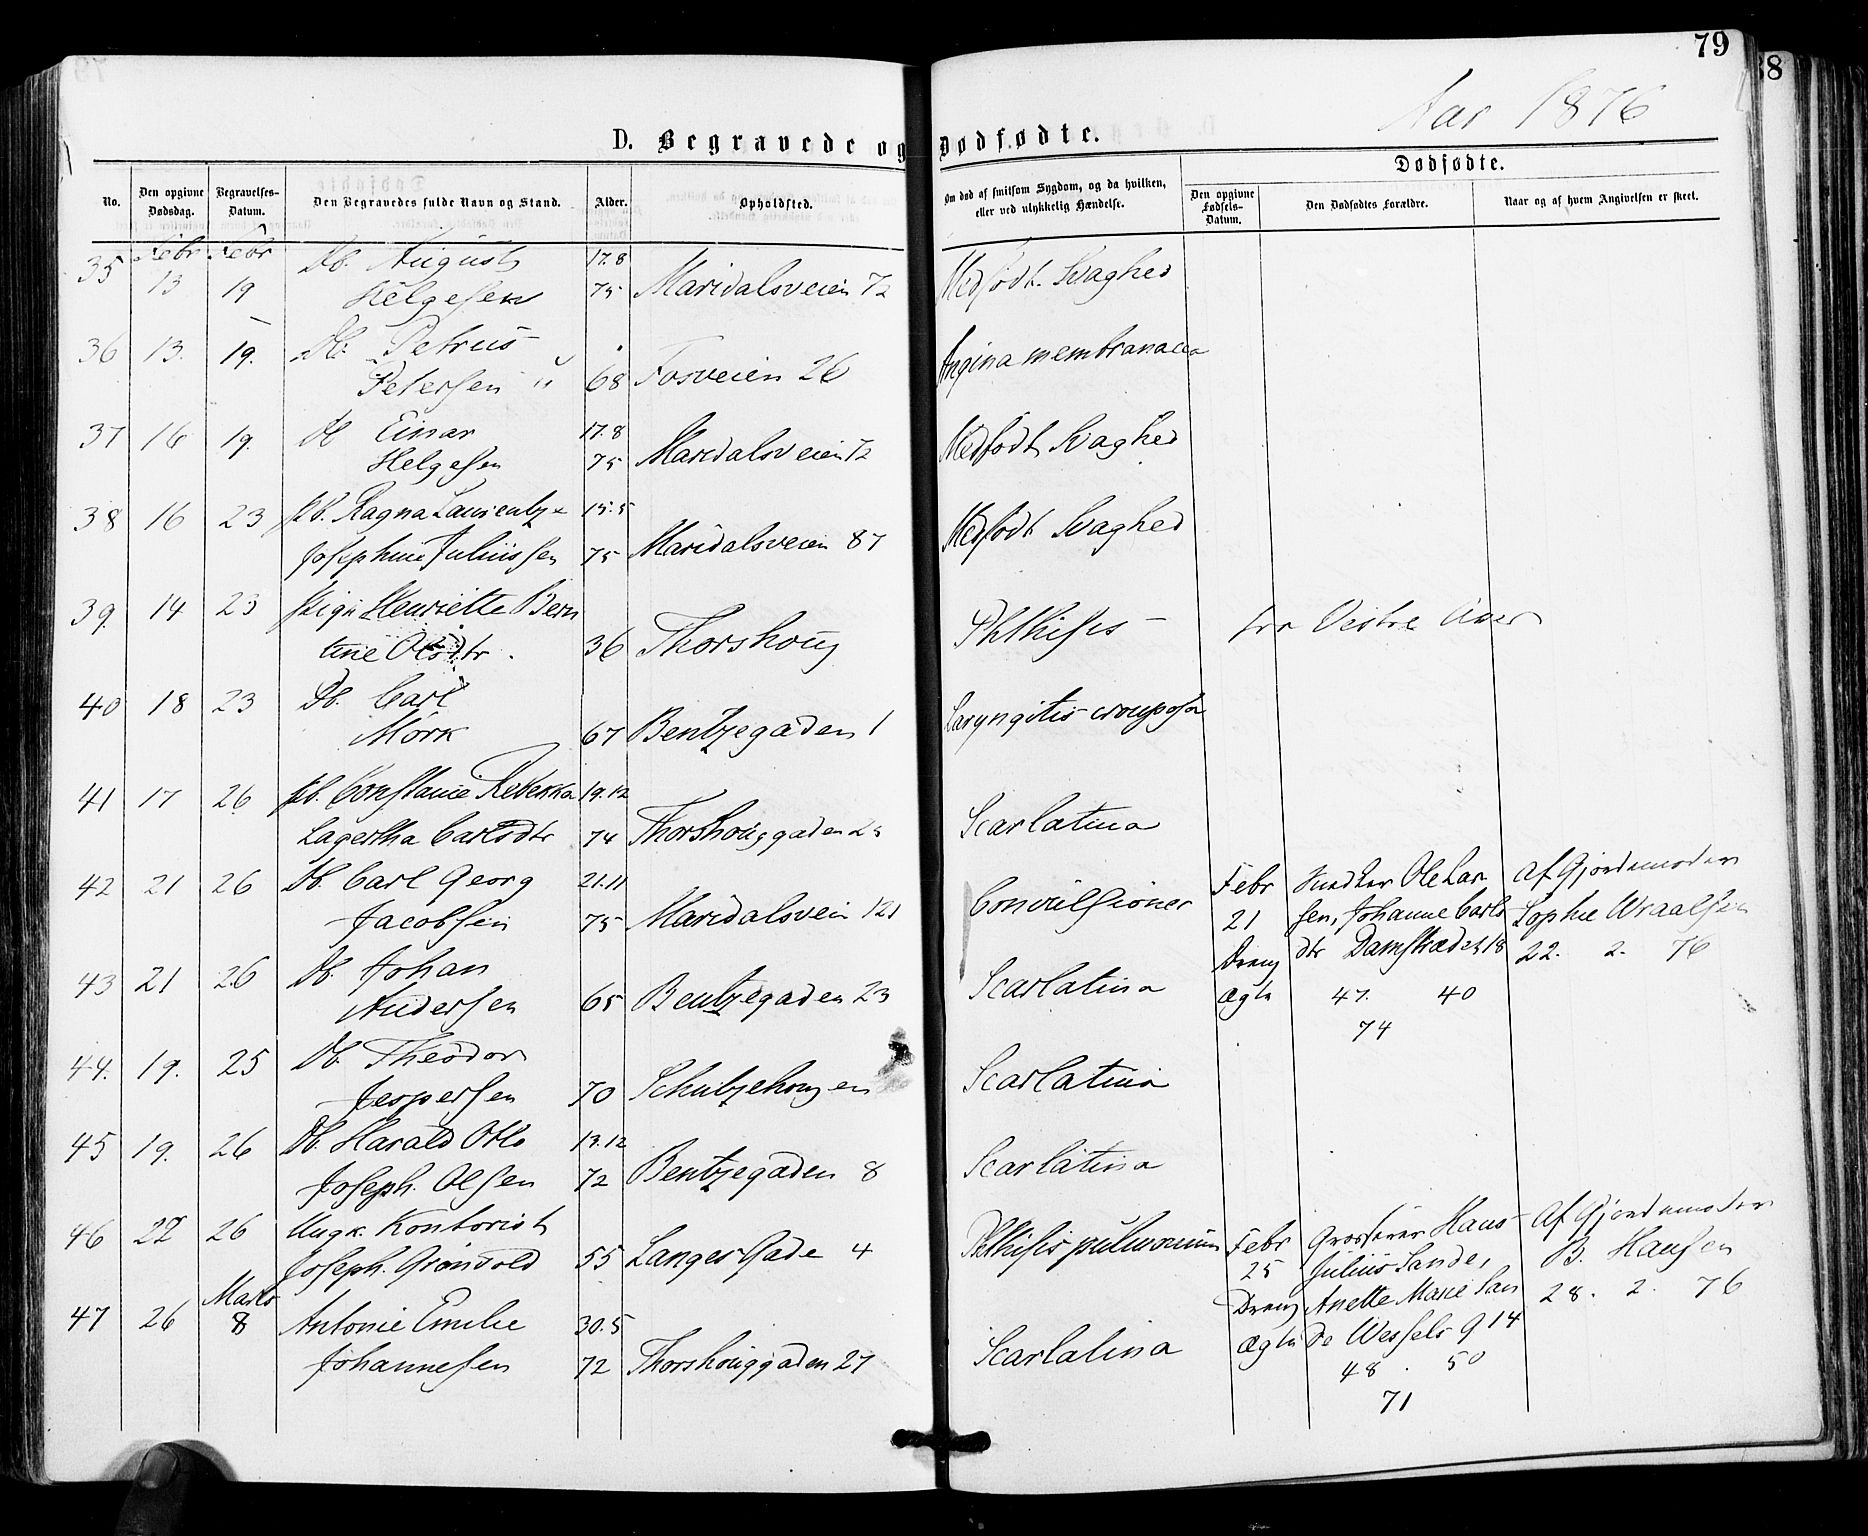 79
8
Aar 1876
D. Begravede og Dødfødte.
No. Den opgivne Dødsdag. Begravelses-Datum. Den Begravedes fulde Navn og Stand. Alder. Opholdsted. Om død af smitsom Sygdom, og da hvilken, eller ved ulykkelig Hændelse. Dødfødte.
Den opgivne Fødsels-Datum. Den Dødfødtes Forældre. Naar og af hvem Angivelsen er skeet.
Febr Febr
35 13 19 Db. August 17.8
Helgesen 75 Maridalsveien 72 Medfødt Svaghed
36 13. 19. Db. Petrus
Petersen 68 Fosveien 26 Angina membranacea
37 16 19. Db Einar 17.8
Helgesen 75 Maridalsveien 72 Medfødt Svaghed
38 16 23 Pb. Ragna 15.5
Josephine Juliussen 75 Maridalsveien 87 Medfødt Svaghed
39. 14 23 Pige Henriette Bern
tine Olsdtr. 36 Thorshoug Phthisis - fra Vestre Aker
40 18 23 Db. Carl
Mørk 67 Bentzegaden 1 Laryngitis crouposa
41 17 26 Pb. Constanse Rebekka 19.12
Lagertha Carlsdtr 74 Thorshouggaden Scarlatina
42 21 26 Db. Carl Georg 21.11
Jacobsen 75 Maridalsveien 121 Convulsioner
Febr Snedker Ole Lar Af Gjordemoder
21 sen, Johanne Carls Sophie Wraalsen
Dreng dtr Damstrædet 18 22. 2. 76
Ægte 47. 40
74
43 21 26 Db. Johan
Andersen 65 Bentzegaden 23 Scarlatina
44. 19. 25 Db. Theodor
Jespersen 70 Schultzehougen Scarlatina
45 19. 26 Db. Harald Otto 13.12
Joseph. Olsen 72 Bentzegaden 8 Scarlatina
46 22 26 Ungk. Kontorist
Joseph. Grønvold 55 Langes Gade 4 Phthisis pulmonum
Febr Grosserer Hans Af Gjordemoder
25 Julius Sande, B. Hansen
Dreng Anette Marie San 28. 2. 76
Ægte de Wessels g 14
48. 50
71
Marts
47 26 8 Antonie Emilie 30.5
Johannesen 72 Thorshouggaden 27 Scarlatina